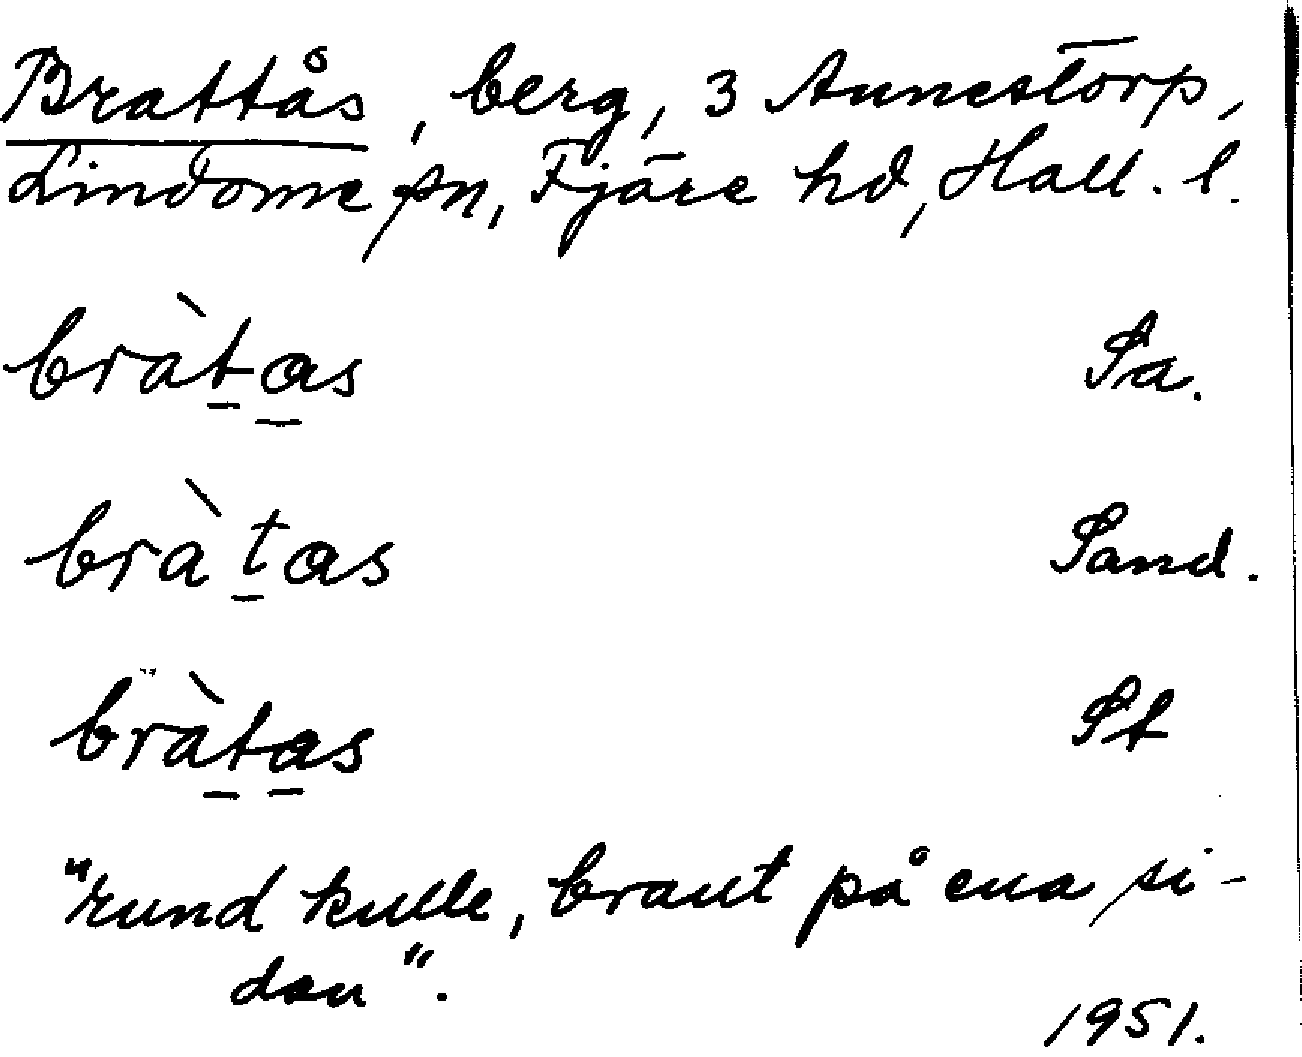 Brattås, berg, 3 Annestorp,
Lindome sn, Fjäre hd, Hall. l.
bràtas Sa.
bràtas Sand.
bràtas St
"rund kulle, brant på ena si-
dan".
1951.